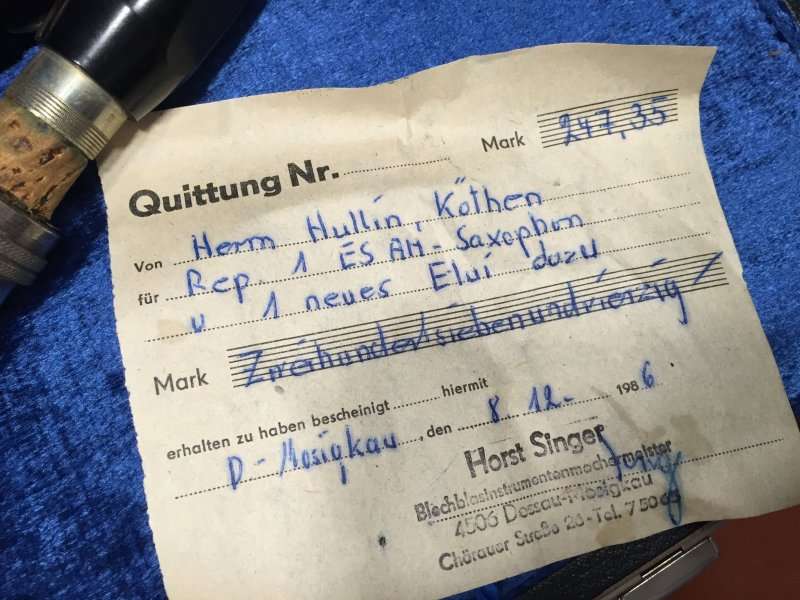 Mark 247,35
Quittung Nr.
Von Herrn Hullin, Köthen
für Rep. 1 ES Alt-Saxophon
u 1 neues Etui dazu
Mark Zweihundertsiebenundvierzig /
erhalten zu haben bescheinigt hiermit
D-Mosigkau, den 8. 12. 1986
Horst Singer
Blechblasinstrumentenmachermeister
4506 Dessau-Mosigkau
Chörauer Straße 26 - Tel. 7 50 65